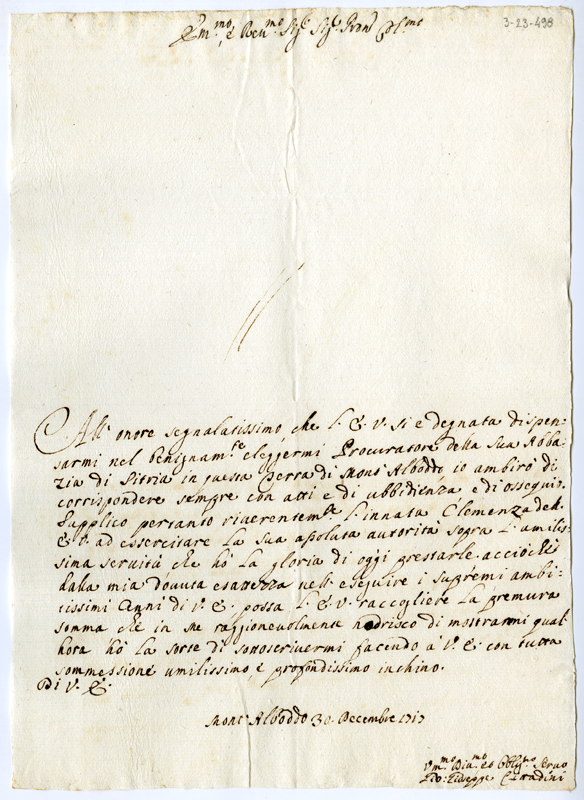 3-23-498
Em.mo, e Reu.mo Sig.r Sig.r Pron Col.mo
All'onore segnalatissimo, che l'E. V. si e degnata dispen-
sarmi nel benignam.te eleggermi Procuratore della Sua Abba-
zia di Sitria in questa Terra di Mont'Alboddo io ambirò di
corrispondere sempre con atti e di ubbidienza e di ossequio.
Supplico pertanto riverentem.te l'innata Clemenza dell'
E. V. ad essercitare la sua assoluta autorità sopra l'umilis-
sima seruitù che hò la gloria di oggi prestarle. acciòche
dalla mia douuta esattezza nell'eseguire i suprèmi ambi-
tissimi cenni di V. E. possa l'E. V. raccogliere la premura
somma che in me raggioneuolmente nodrisco di mostrarmi qual
hora hò la sorte di sottoscriuermi facendo à V. E. con tutta
sommessione umilissimo, e profondissimo inchino.
Di V. E.
Mont'Alboddo 30. Decembre 1717
Vm.mo Diu.mo et Obblig.mo Seruo
Gio: Giuseppe Cittadini